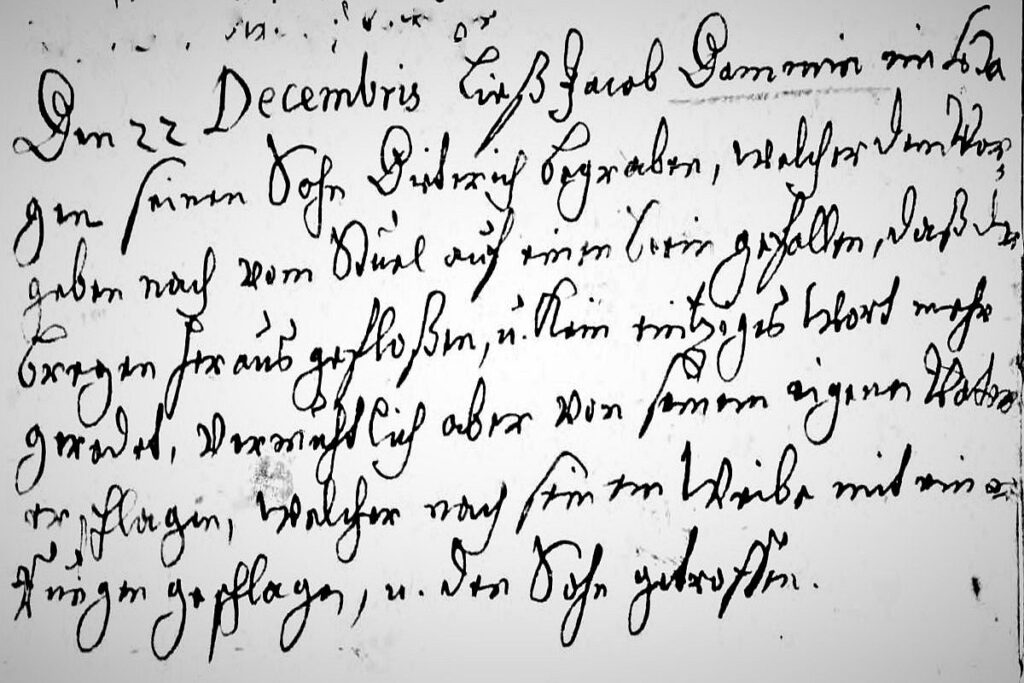 Den 22 Decembris Ließ Jacob
gen seinen Sohn Dieterich begraben, welcher dem Vor-
geben nach vom Stuel auf einen gefallen, daß der
Bregen heraus gefloßen, u. Kein eintziges Wort mehr
geredet, vermuhtlich aber von seinem eigenen Vater
erschlagen, welcher nach seinem Weibe mit einer
Rüngen geschlagen, u. den Sohn getroffen.